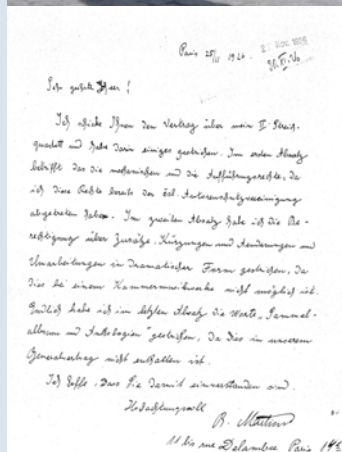 Paris 25/XI 1926
27 Nov. 1926
30.XI.26
Sehr geehrter Herr!
Ich schicke Ihnen den Vertrag über mein II. Streich-
quartett und habe darin einiges gestrichen. Im ersten Absatz
betrifft das die mechanischen und die Aufführungsrechte, da
ich diese Rechte bereits der čsl. Autorenschutzvereinigung
abgetreten habe. Im zweiten Absatz habe ich die Be-
rechtigung über Zusätze, Kürzungen und Aenderungen und
Umarbeitungen in dramatischer Form gestrichen, da
dies bei einem Kammermusikwerke nicht möglich ist.
Endlich habe ich im letzten Absatz die Worte „Sammel-
album und Anthologien" gestrichen, da dies in unserem
Generalvertrag nicht enthalten ist.
Ich hoffe, dass Sie damit einverstanden sind.
Hochachtungsvoll
B. Martinů
11 bis rue Delambre Paris 14e